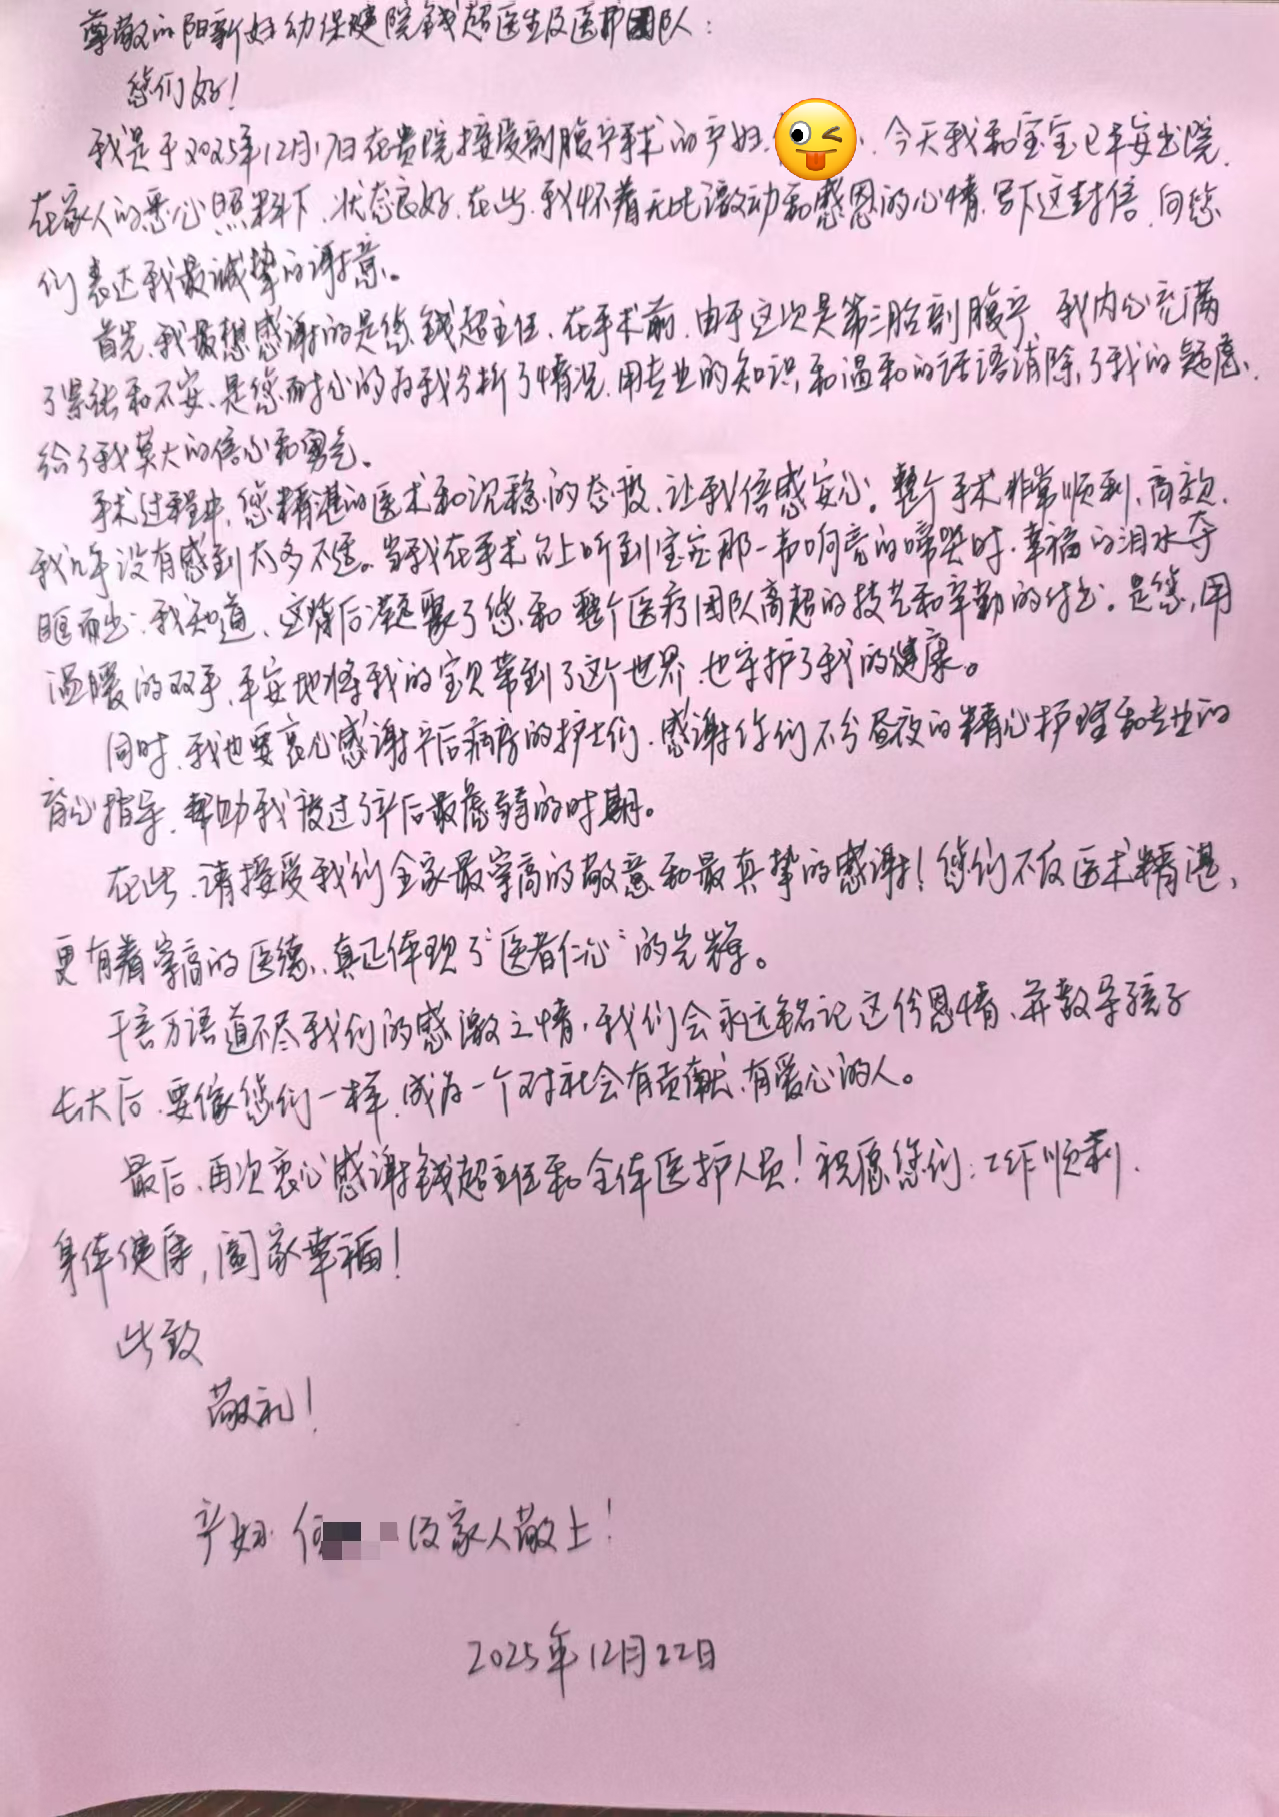 尊敬的阳新妇幼保健院钱超医生及医护团队：
您们好！
我是于2025年12月17日在贵院接受剖腹产手术的产妇，今天我和宝宝已平安出院，
在家人的悉心照料下，状态良好，在此，我怀着无比激动和感恩的心情，写下这封信，向您
们表达我最诚挚的谢意。
首先，我最想感谢的是您钱超主任，在手术前，由于这次是第三胎剖腹产，我内心充满
了紧张和不安，是您耐心的为我分析了情况，用专业的知识和温和的话语消除了我的疑虑，
给了我莫大的信心和勇气。
手术过程中，您精湛的医术和沉稳的态度，让我倍感安心。整个手术非常顺利，高效，
我几乎没有感到太多不适。当我在手术台上听到宝宝那一声响亮的啼哭时，幸福的泪水夺
眶而出，我知道，这背后凝聚了您和整个医疗团队高超的技艺和辛勤的付出。是您，用
温暖的双手，平安地将我的宝贝带到了这个世界，也守护了我的健康。
同时，我也要衷心感谢产后病房的护士们，感谢你们不分昼夜的精心护理和专业的
育心指导，帮助我度过了产后最虚弱的时期。
在此，请接受我们全家最崇高的敬意和最真挚的感谢！您们不仅医术精湛，
更有着崇高的医德，真正体现了“医者仁心”的光辉。
千言万语道不尽我们的感激之情，我们会永远铭记这份恩情，并教导孩子
长大后，要像您们一样，成为一个对社会有贡献，有爱心的人。
最后，再次衷心感谢钱超主任和全体医护人员！祝愿您们：工作顺利，
身体健康，阖家幸福！
此致
敬礼！
产妇：何及家人敬上！
2025年12月22日